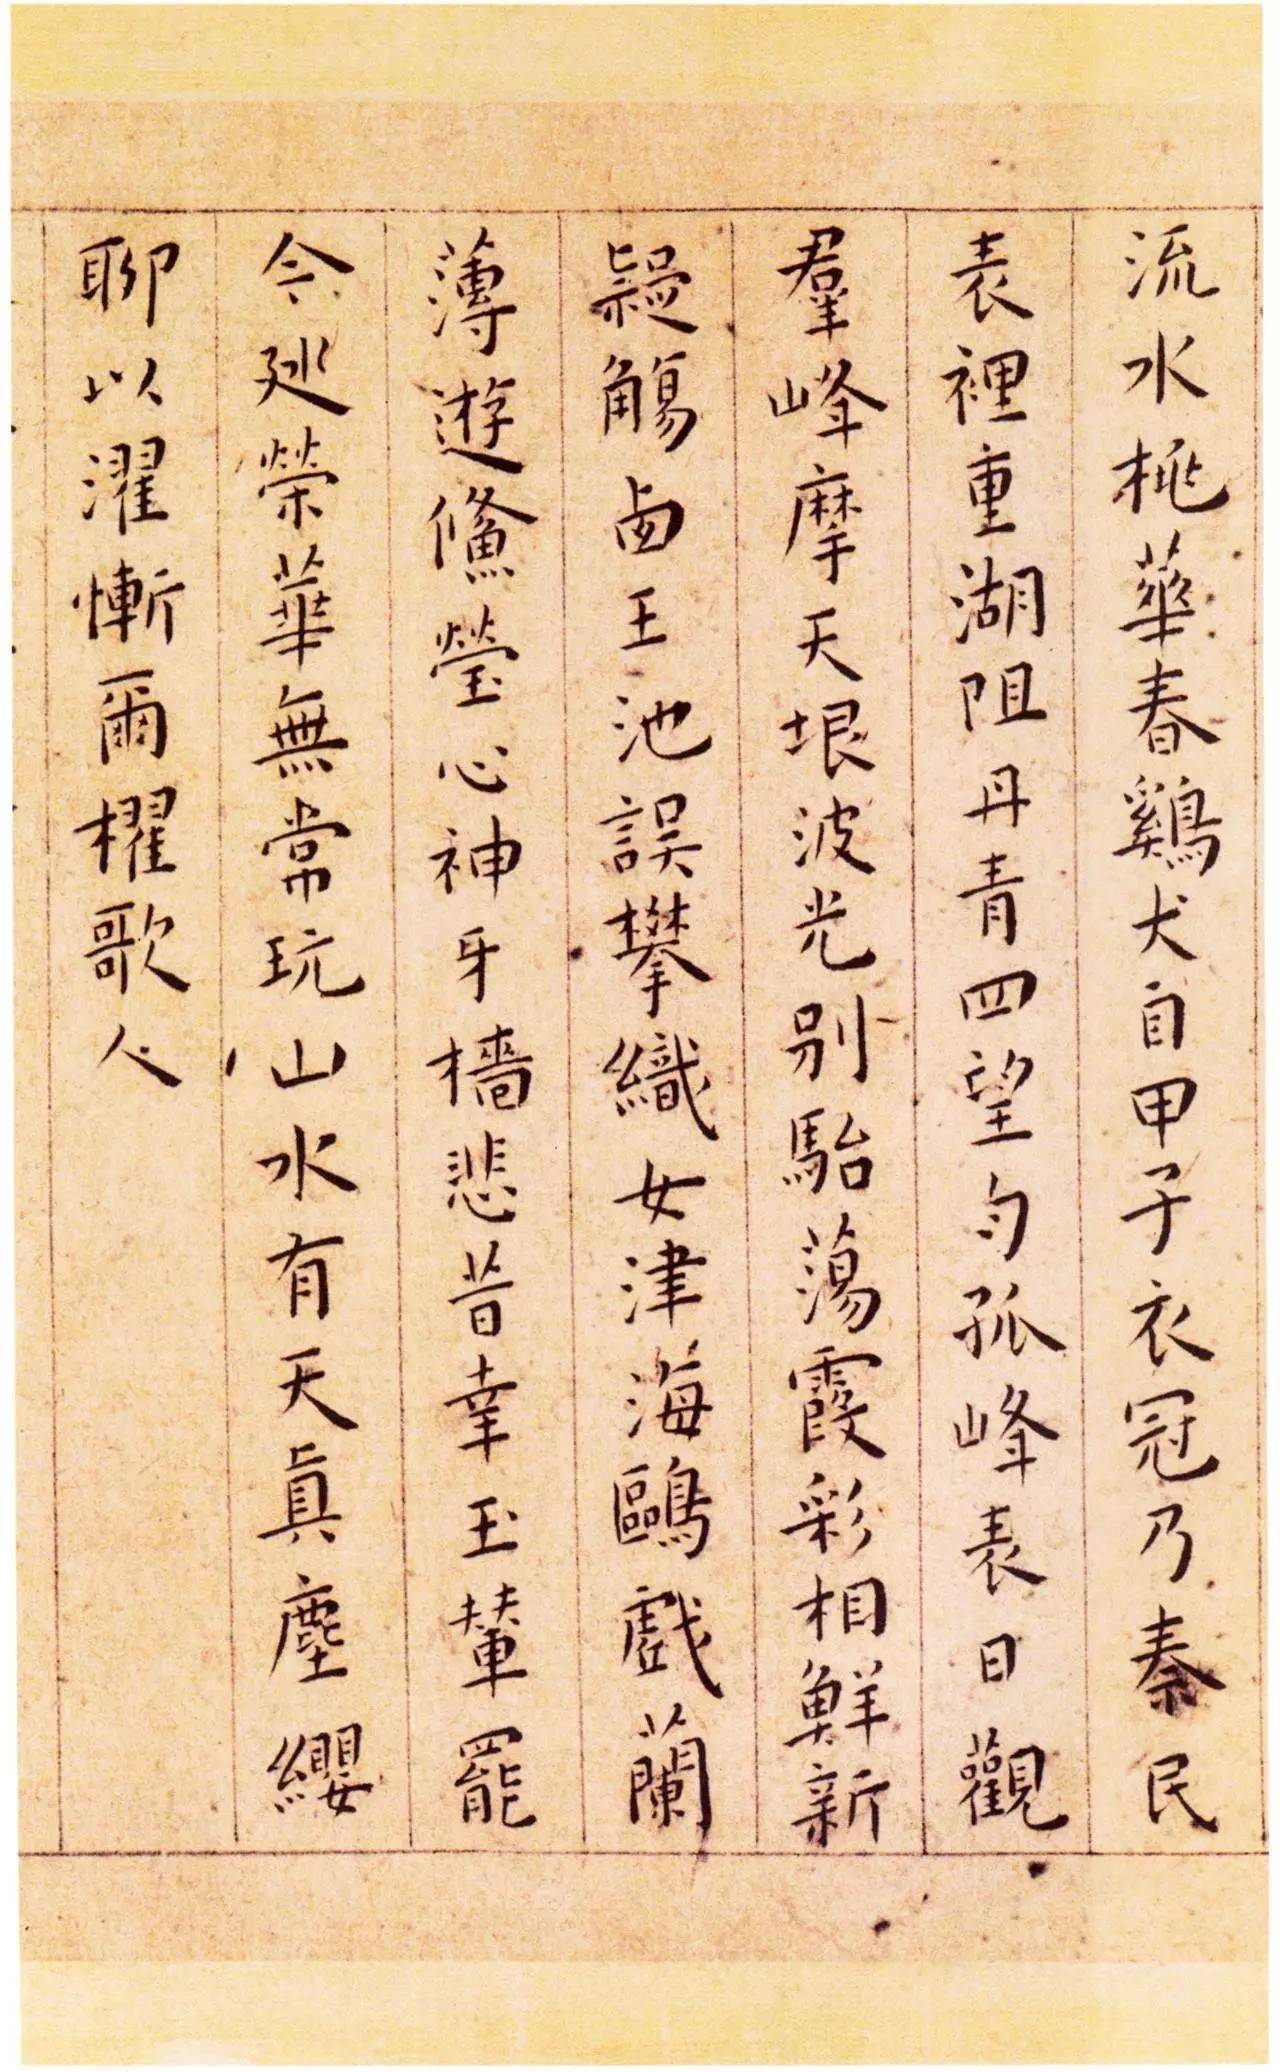 流水桃華春鷄犬自甲子衣冠乃秦民
表裡重湖阻丹青四望勻孤峰表日觀
羣峰摩天垠波光別駘蕩霞彩相鮮新
疑觴卣王池誤攀織女津海鷗戲蘭
薄遊鯈瑩心神牙檣悲昔幸玉輦罷
今廵榮華無常玩山水有天真塵纓
聊以濯慚爾櫂歌人